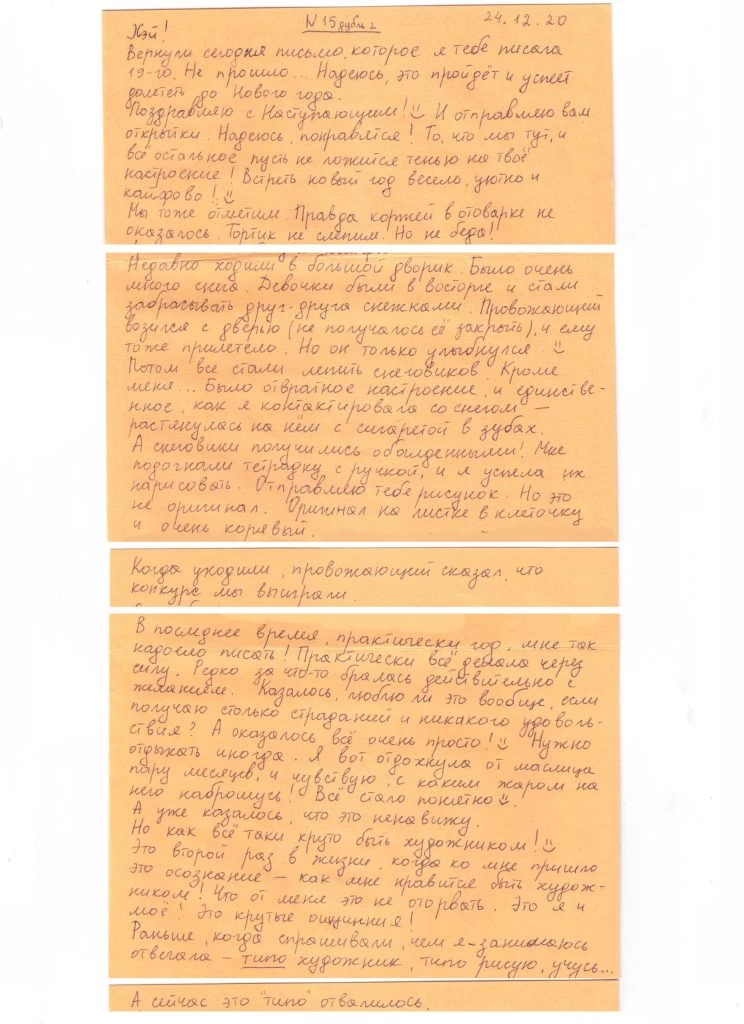 N 15 дубль 2
24.12.20
Хэй!
Вернули сегодня письмо, которое я тебе писала
19-го. Не прошло... Надеюсь, это пройдёт и успеет
долететь до Нового года.
Поздравляю с Наступающим! И отправляю вам
открытки. Надеюсь, понравятся! То, что мы тут, и
всё остальное пусть не ложится тенью на твоё
настроение! Встреть новый год весело, уютно и
кайфово!
Мы тоже отметим. Правда коржей в отоварке не
оказалось. Тортик не слепим. Но не беда!
Недавно ходили в большой дворик. Было очень
много снега. Девочки были в восторге и стали
забрасывать друг-друга снежками. Провожающий
возился с дверью (не получалось её закрыть), и ему
тоже прилетело. Но он только улыбнулся
Потом все стали лепить снеговиков. Кроме
меня... Было отвратное настроение, и единстве-
нное, как я контактировала со снегом —
растянулась на нём с сигаретой в зубах.
А снеговики получились обалденными! Мне
подогнали тетрадку с ручкой, и я успела их
нарисовать. Отправляю тебе рисунок. Но это
не оригинал. Оригинал на листке в клеточку
и очень корявый.
Когда уходили, провожающий сказал, что
конкурс мы выиграли.
В последнее время, практически год, мне так
надоело писать! Практически всё делала через
силу. Редко за что-то бралась действительно с
желанием. Казалось, люблю ли это вообще, если
получаю столько страданий и никакого удоволь-
ствия? А оказалось всё очень просто! Нужно
отдыхать иногда. Я вот отдохнула от маслица
пару месяцев, и чувствую, с каким жаром на
него наброшусь! Всё стало понятно.
А уже казалось, что это ненавижу.
Но как всё таки круто быть художником!
Это второй раз в жизни, когда ко мне пришло
это осознание – как мне нравится быть худож-
ником! Что от меня это не оторвать. Это я и
моё! Это крутые ощущения!
Раньше, когда спрашивали, чем я занимаюсь
отвечала – типо художник, типо рисую, учусь...
А сейчас это "типо" отвалилось.